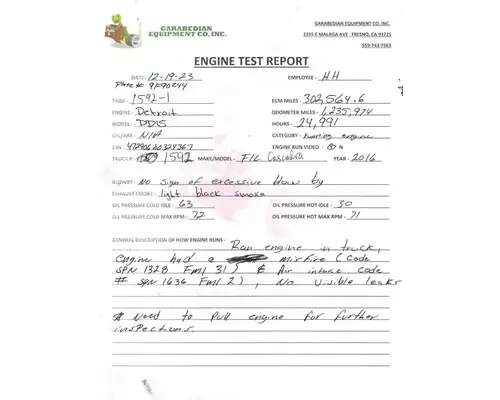 GARABEDIAN
EQUIPMENT CO, INC.
GARABEDIAN EQUIPMENT CO, INC.
3295 E MALAGA AVE FRESNO, CA 93725
559-743-7503
ENGINE TEST REPORT
DATE - 12-19-23 EMPLOYEE - HH
Plate # 9F90244
TAG# - 1592-1 ECM MILES - 302,564.6
ENGINE - Detroit ODOMETER MILES - 1,235,974
MODEL - DD15 HOURS - 24,991
CPL/ARR - N/A CATEGORY - Running engine
ESN - ENGINE RUN VIDEO - Y N
TRUCK# - 1592 MAKE/MODEL - F/L Cascadia YEAR - 2016
BLOWBY - No sign of excessive blow by
EXHAUST SMOKE - light black smoke
OIL PRESSURE COLD IDLE - 63 OIL PRESSURE HOT IDLE - 30
OIL PRESSURE COLD MAX RPM - 72 OIL PRESSURE HOT MAX RPM - 71
GENERAL DESCRIPTION OF HOW ENGINE RUNS - Ran engine in truck,
engine had a misfire (Code
SPN 1328 FMI 31) & Air intake code
# SPN 1636 FMI 2), No visible leaks
# Need to pull engine for further
inspections.